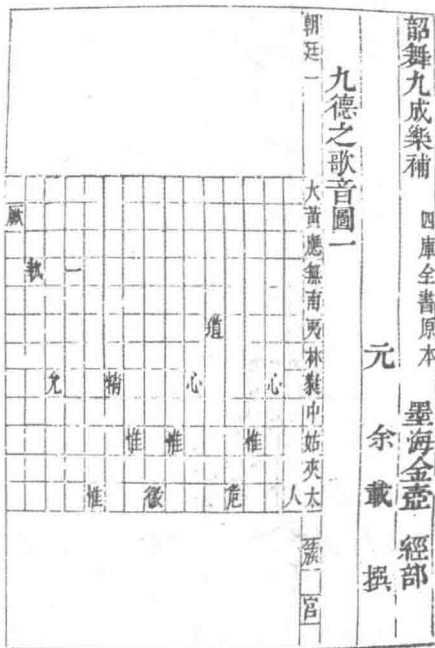 韶舞九成樂補 四庫全書原本 墨海金壺 經部
元 余載 撰
九德之歌音圖一
朝廷一 大黃應無南夷林蕤中姑夾太 簇 宮
人
心
惟
危
道
心
惟
微
惟
精
惟
一
允
執
厥